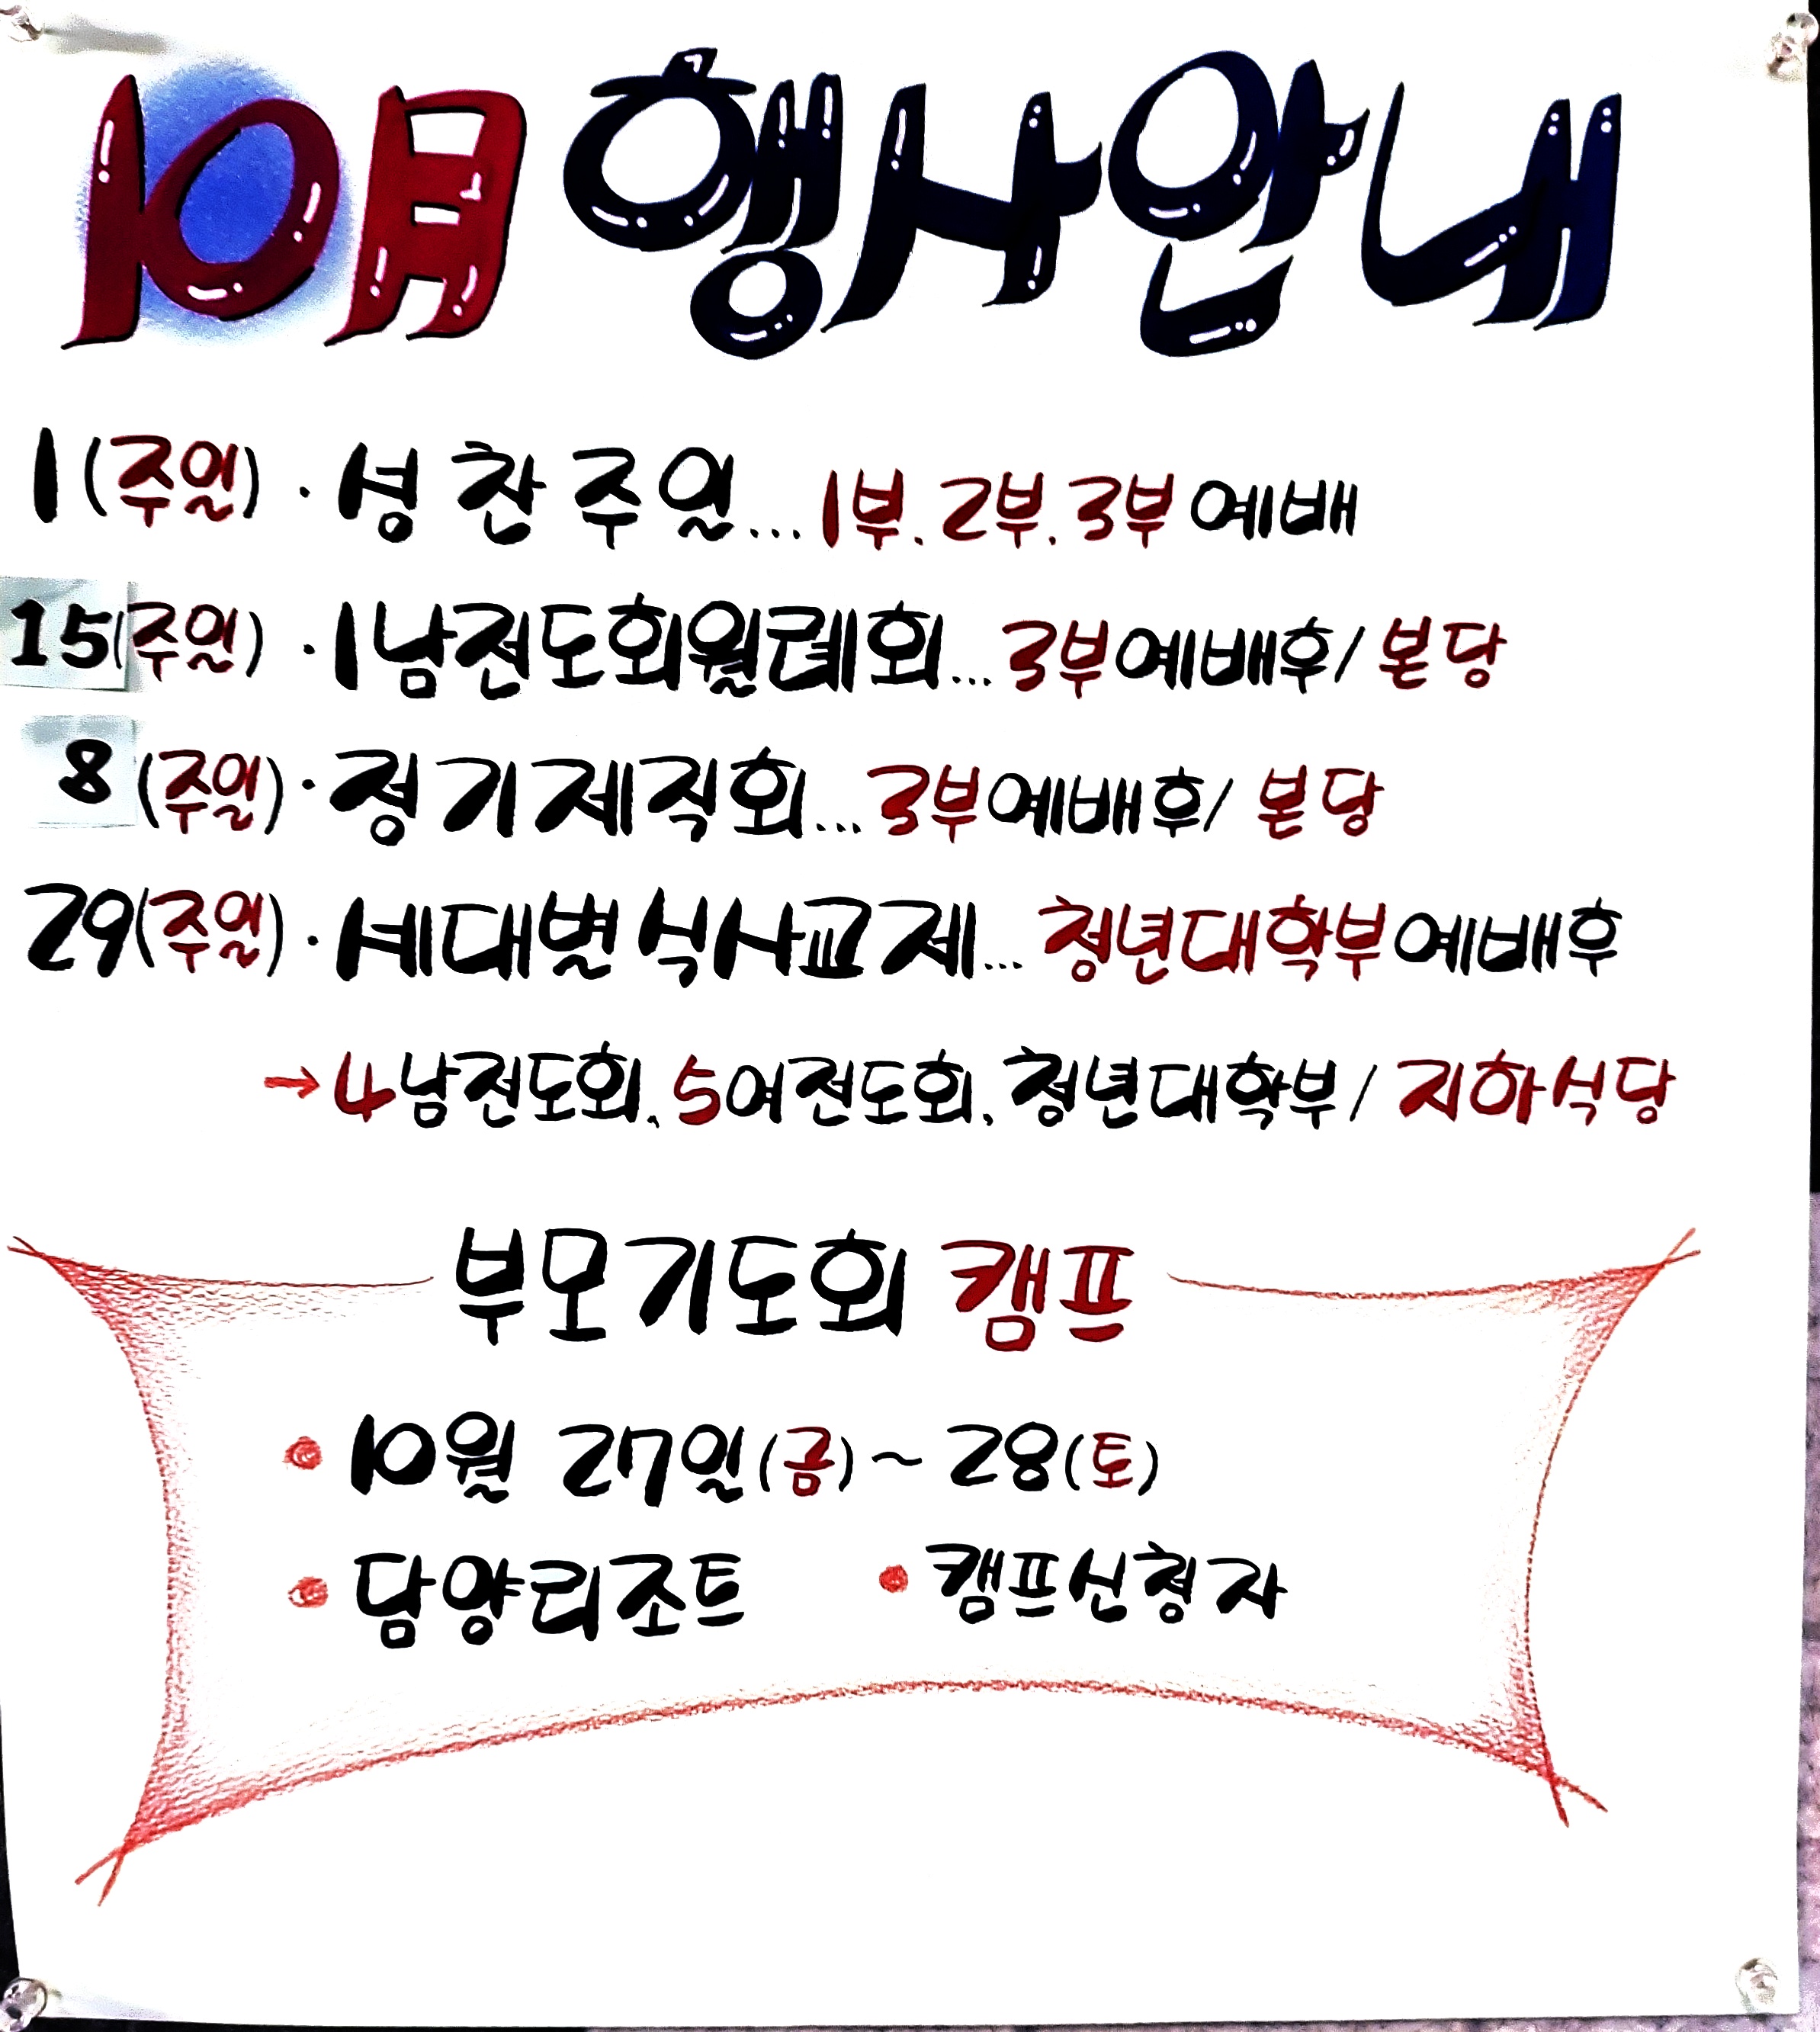 10月 행사안내
1(주일)·성찬주일...1부.2부.3부예배
15(주일)·1남전도회월례회...3부예배후/본당
8(주일)·정기제직회...3부예배후/본당
29(주일)·세대별식사교제...청년대학부예배후
→4남전도회.5여전도회,청년대학부/지하식당
부모기도회 캠프
• 10월 27일(금)~28(토)
• 담양리조트 • 캠프신청자